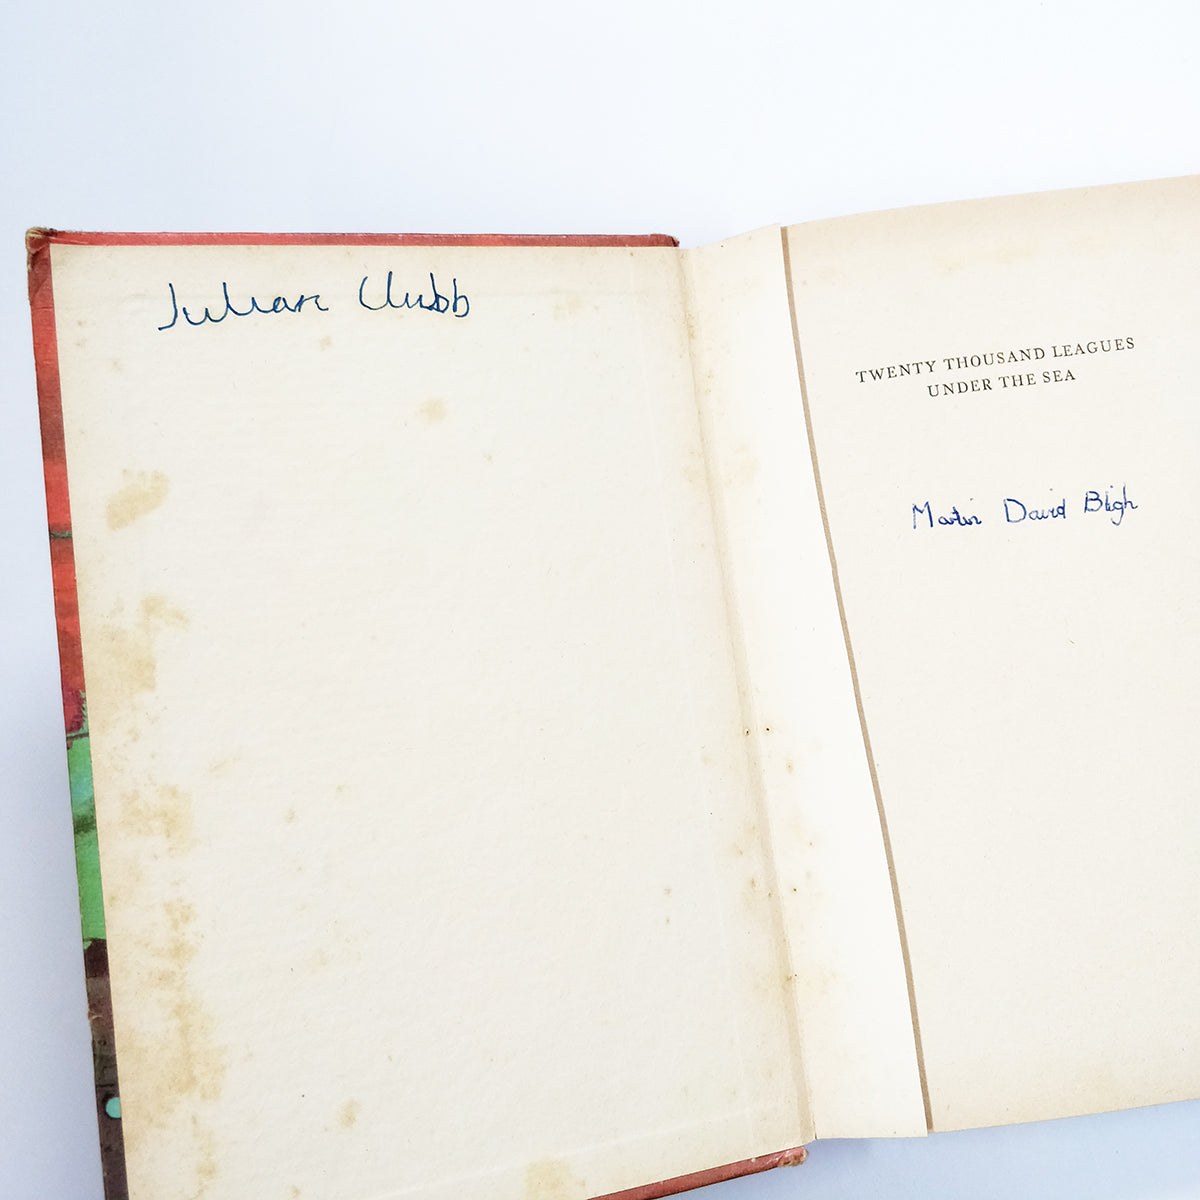 Julian Clubb
TWENTY THOUSAND LEAGUES
UNDER THE SEA
Martin David Bligh